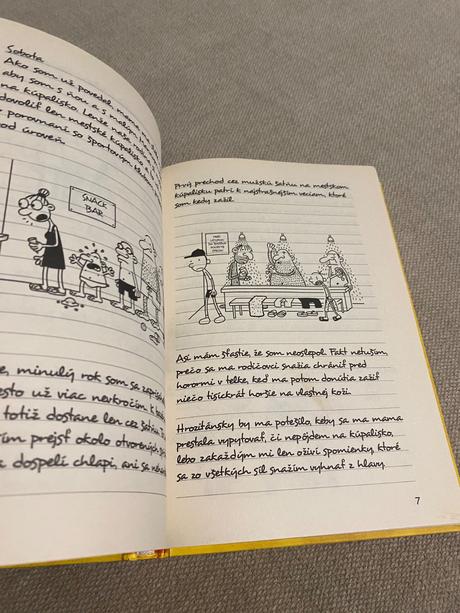 Sobota
Ako som už povedal, mama
aby som s ňou a s malým
na kúpalisko. Lenže naša
dovoliť len mestské kúpalisko
v porovnaní so športovým
od úroveň.
SNACK
BAR
minulý rok som sa
esto už viac nevkročím. K
totiž dostane len cez šatňu
ím prejsť okolo otvorených
dospelí chlapi, ani sa
Prvý prechod cez mužskú šatňu na mestskom
kúpalisku patrí k najstrašnejším veciam, ktoré
som kedy zažil.
Asi mám šťastie, že som neoslepol. Fakt netuším,
prečo sa ma rodičovci snažia chrániť pred
horormi v telke, keď ma potom donútia zažiť
niečo tisíckrát horšie na vlastnej koži.
Hrozitánsky by ma potešilo, keby sa ma mama
prestala vypytovať, či nepôjdem na kúpalisko,
lebo zakaždým mi len oživí spomienky, ktoré
sa zo všetkých síl snažím vyhnať z hlavy.
7